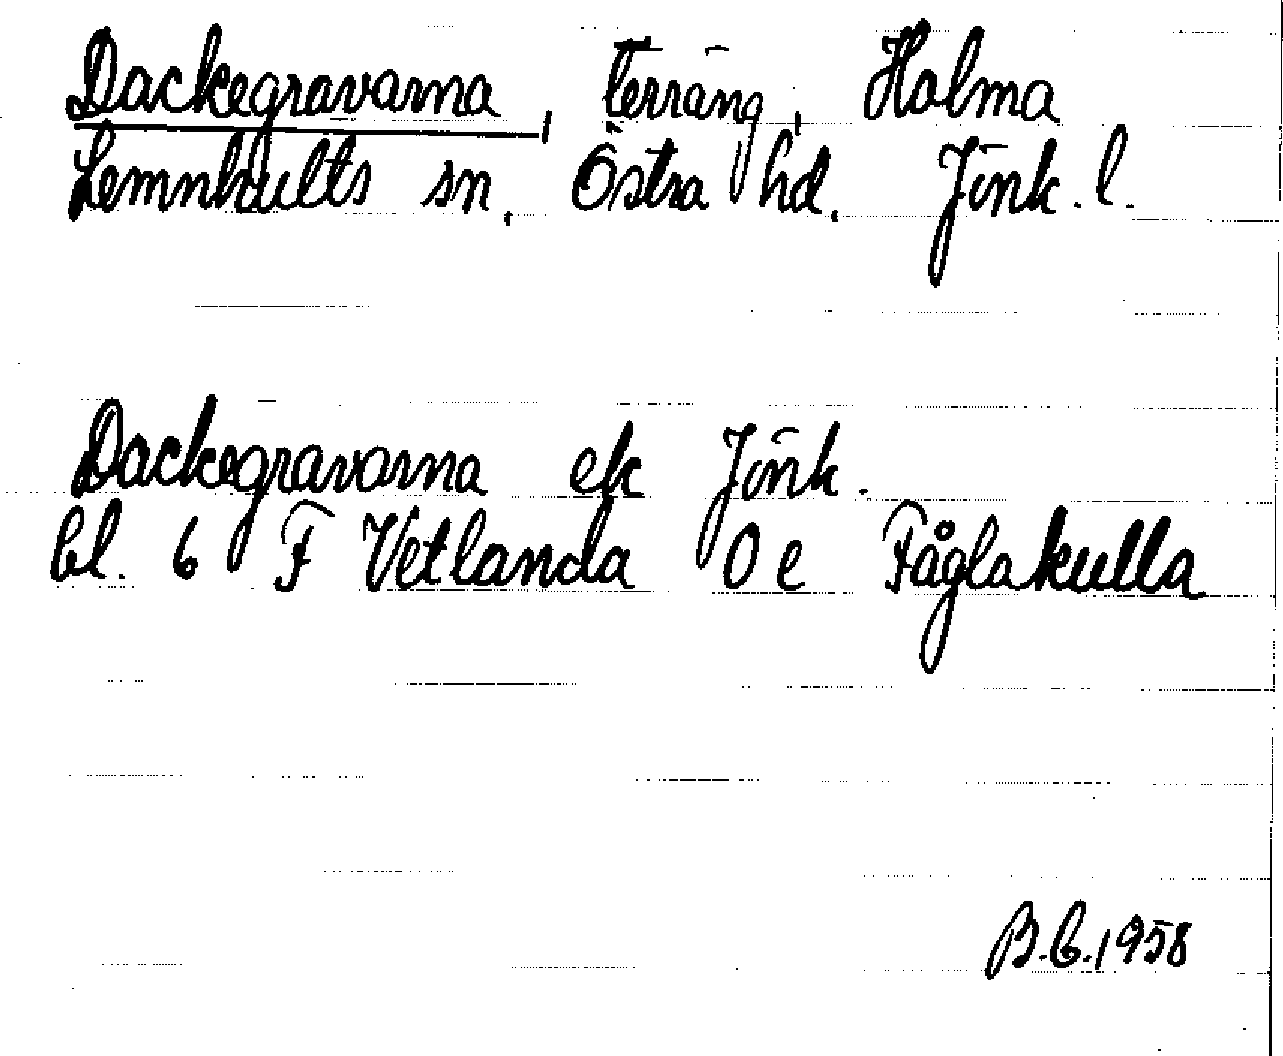 Dackegravarna, terräng, Holma
Lemnhults sn, Östra hd. Jönk. l.
Dackegravarna ek Jönk.
bl. 6 F Vetlanda 0 e Fåglakulla
B.C. 1958